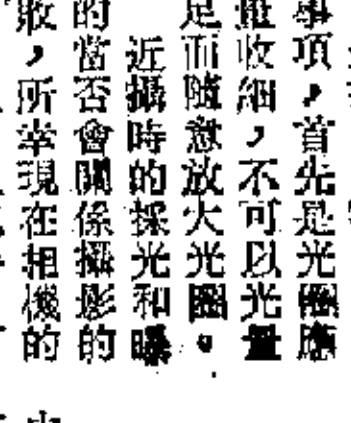 事項，首先是光圈應
收細，不可以光量
足而隨意放大光圈。
近攝時的採光和曝
的當否會關係攝影的
，所幸現在相機的